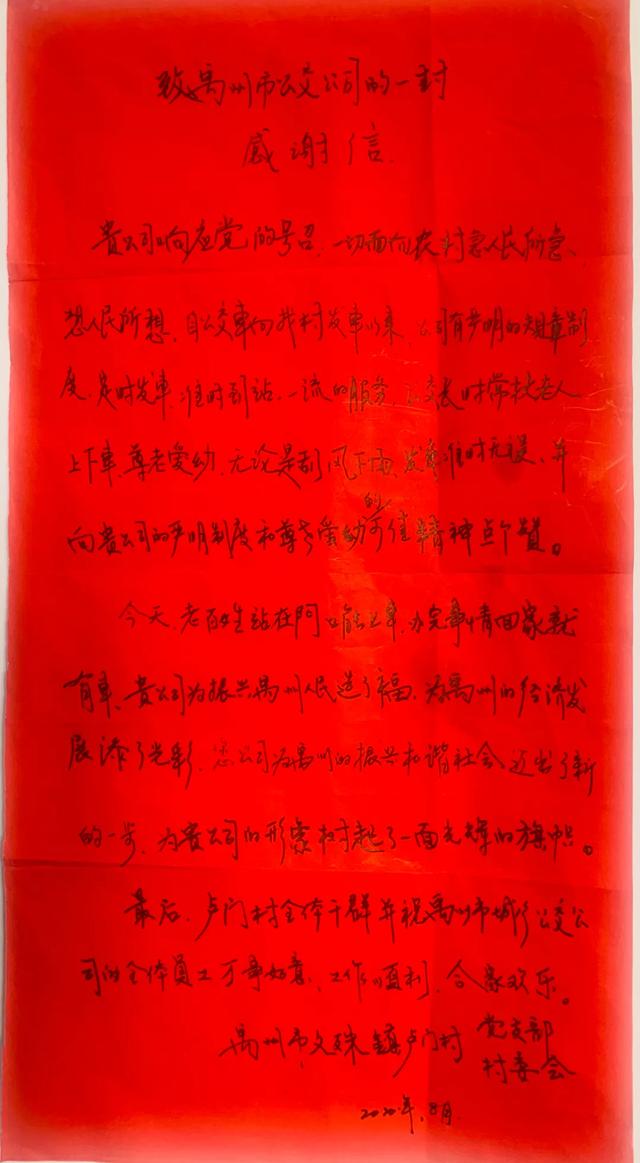 致禹州市公交公司的一封
感谢信
贵公司响应党的号召,一切面向农村急人民所急、
想人民所想,自公交車向我村发車以来,公司有严明的规章制
度,定时发車,准时到站,一流的服务,公交長时常扶老人
上下車,尊老爱幼,无论是刮风下雨,发車准时无误、并
向贵公司的严明制度和尊老爱幼的可佳精神点个赞。
今天,老百姓站在门口能上車,办完事情回家就
有車,贵公司为振兴禹州人民造了福,为禹州的经济发
展添了光彩,您公司为禹州的振兴和谐社会迈出了新
的一步,为贵公司的形象树起了一面光辉的旗帜。
最后,卢门村全体干群并祝禹州市城乡公交公
司的全体员工万事如意,工作顺利,合家欢乐。
禹州市文殊镇卢门村 党支部
村委会
2020年,8月